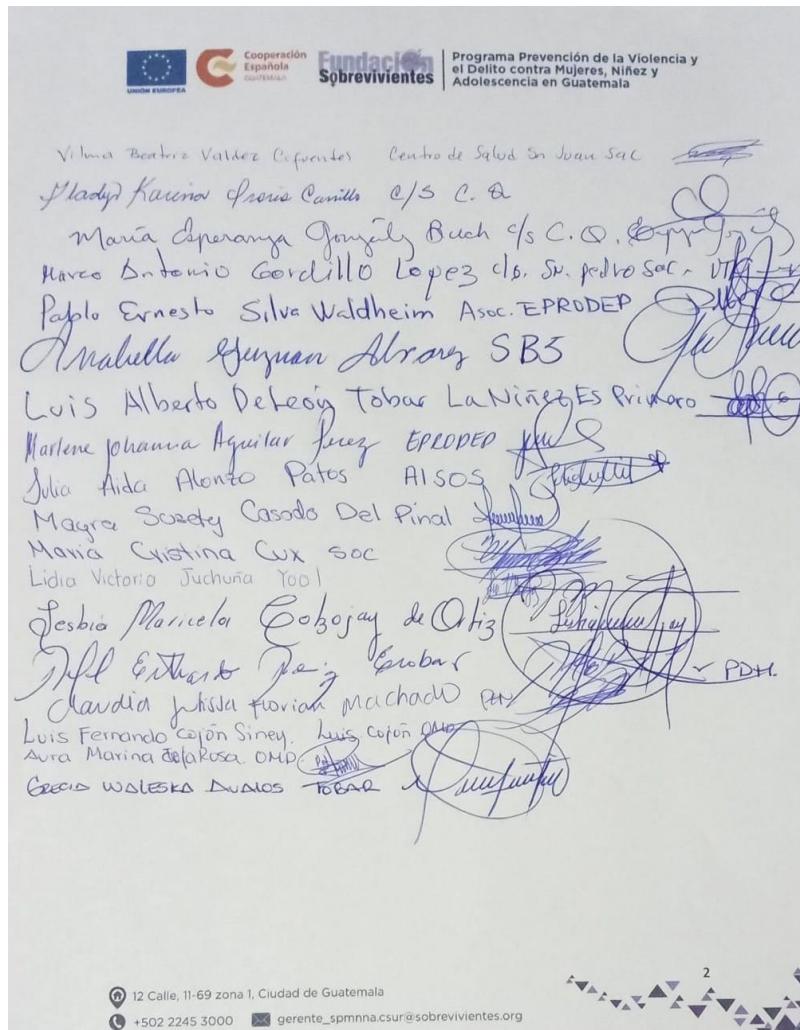 UNIÓN EUROPEA
Cooperación
Española
GUATEMALA
Fundación
Sobrevivientes
Programa Prevención de la Violencia y
el Delito contra Mujeres, Niñez y
Adolescencia en Guatemala
Vilma Beatriz Valdez Cifuentes Centro de Salud Sn Juan Sac
Gladys Karina Carrillo c/S C. Q
María Esperanza González Buch c/s C.Q.
Marco Antonio Gordillo Lopez c/s. Sn. pedro Sac.
Pablo Ernesto Silva Waldheim Asoc. EPRODEP
Anabella Guzman Alvarez SBS
Luis Alberto DeLeón Tobar La Niñez Es Primero
Marlene Johanna Aguilar Perez EPRODEP
Julia Aida Alonzo Patos AISOS
Mayra Suzety Casado Del Pinal
Maria Cristina Cux Soc
Lidia Victoria Juchuña Yool
Lesbia Maricela Cobojay de Ortiz
Escobar PDH.
Claudia Julissa Florian Machado
Luis Fernando Cojón Siney. Luis Cojón OMP
Aura Marina de la Rosa OMP.
GRECIA WALESKA AVALOS TOBAR
2
12 Calle, 11-69 zona 1, Ciudad de Guatemala
+502 2245 3000 gerente_spmnna.csur@sobrevivientes.org